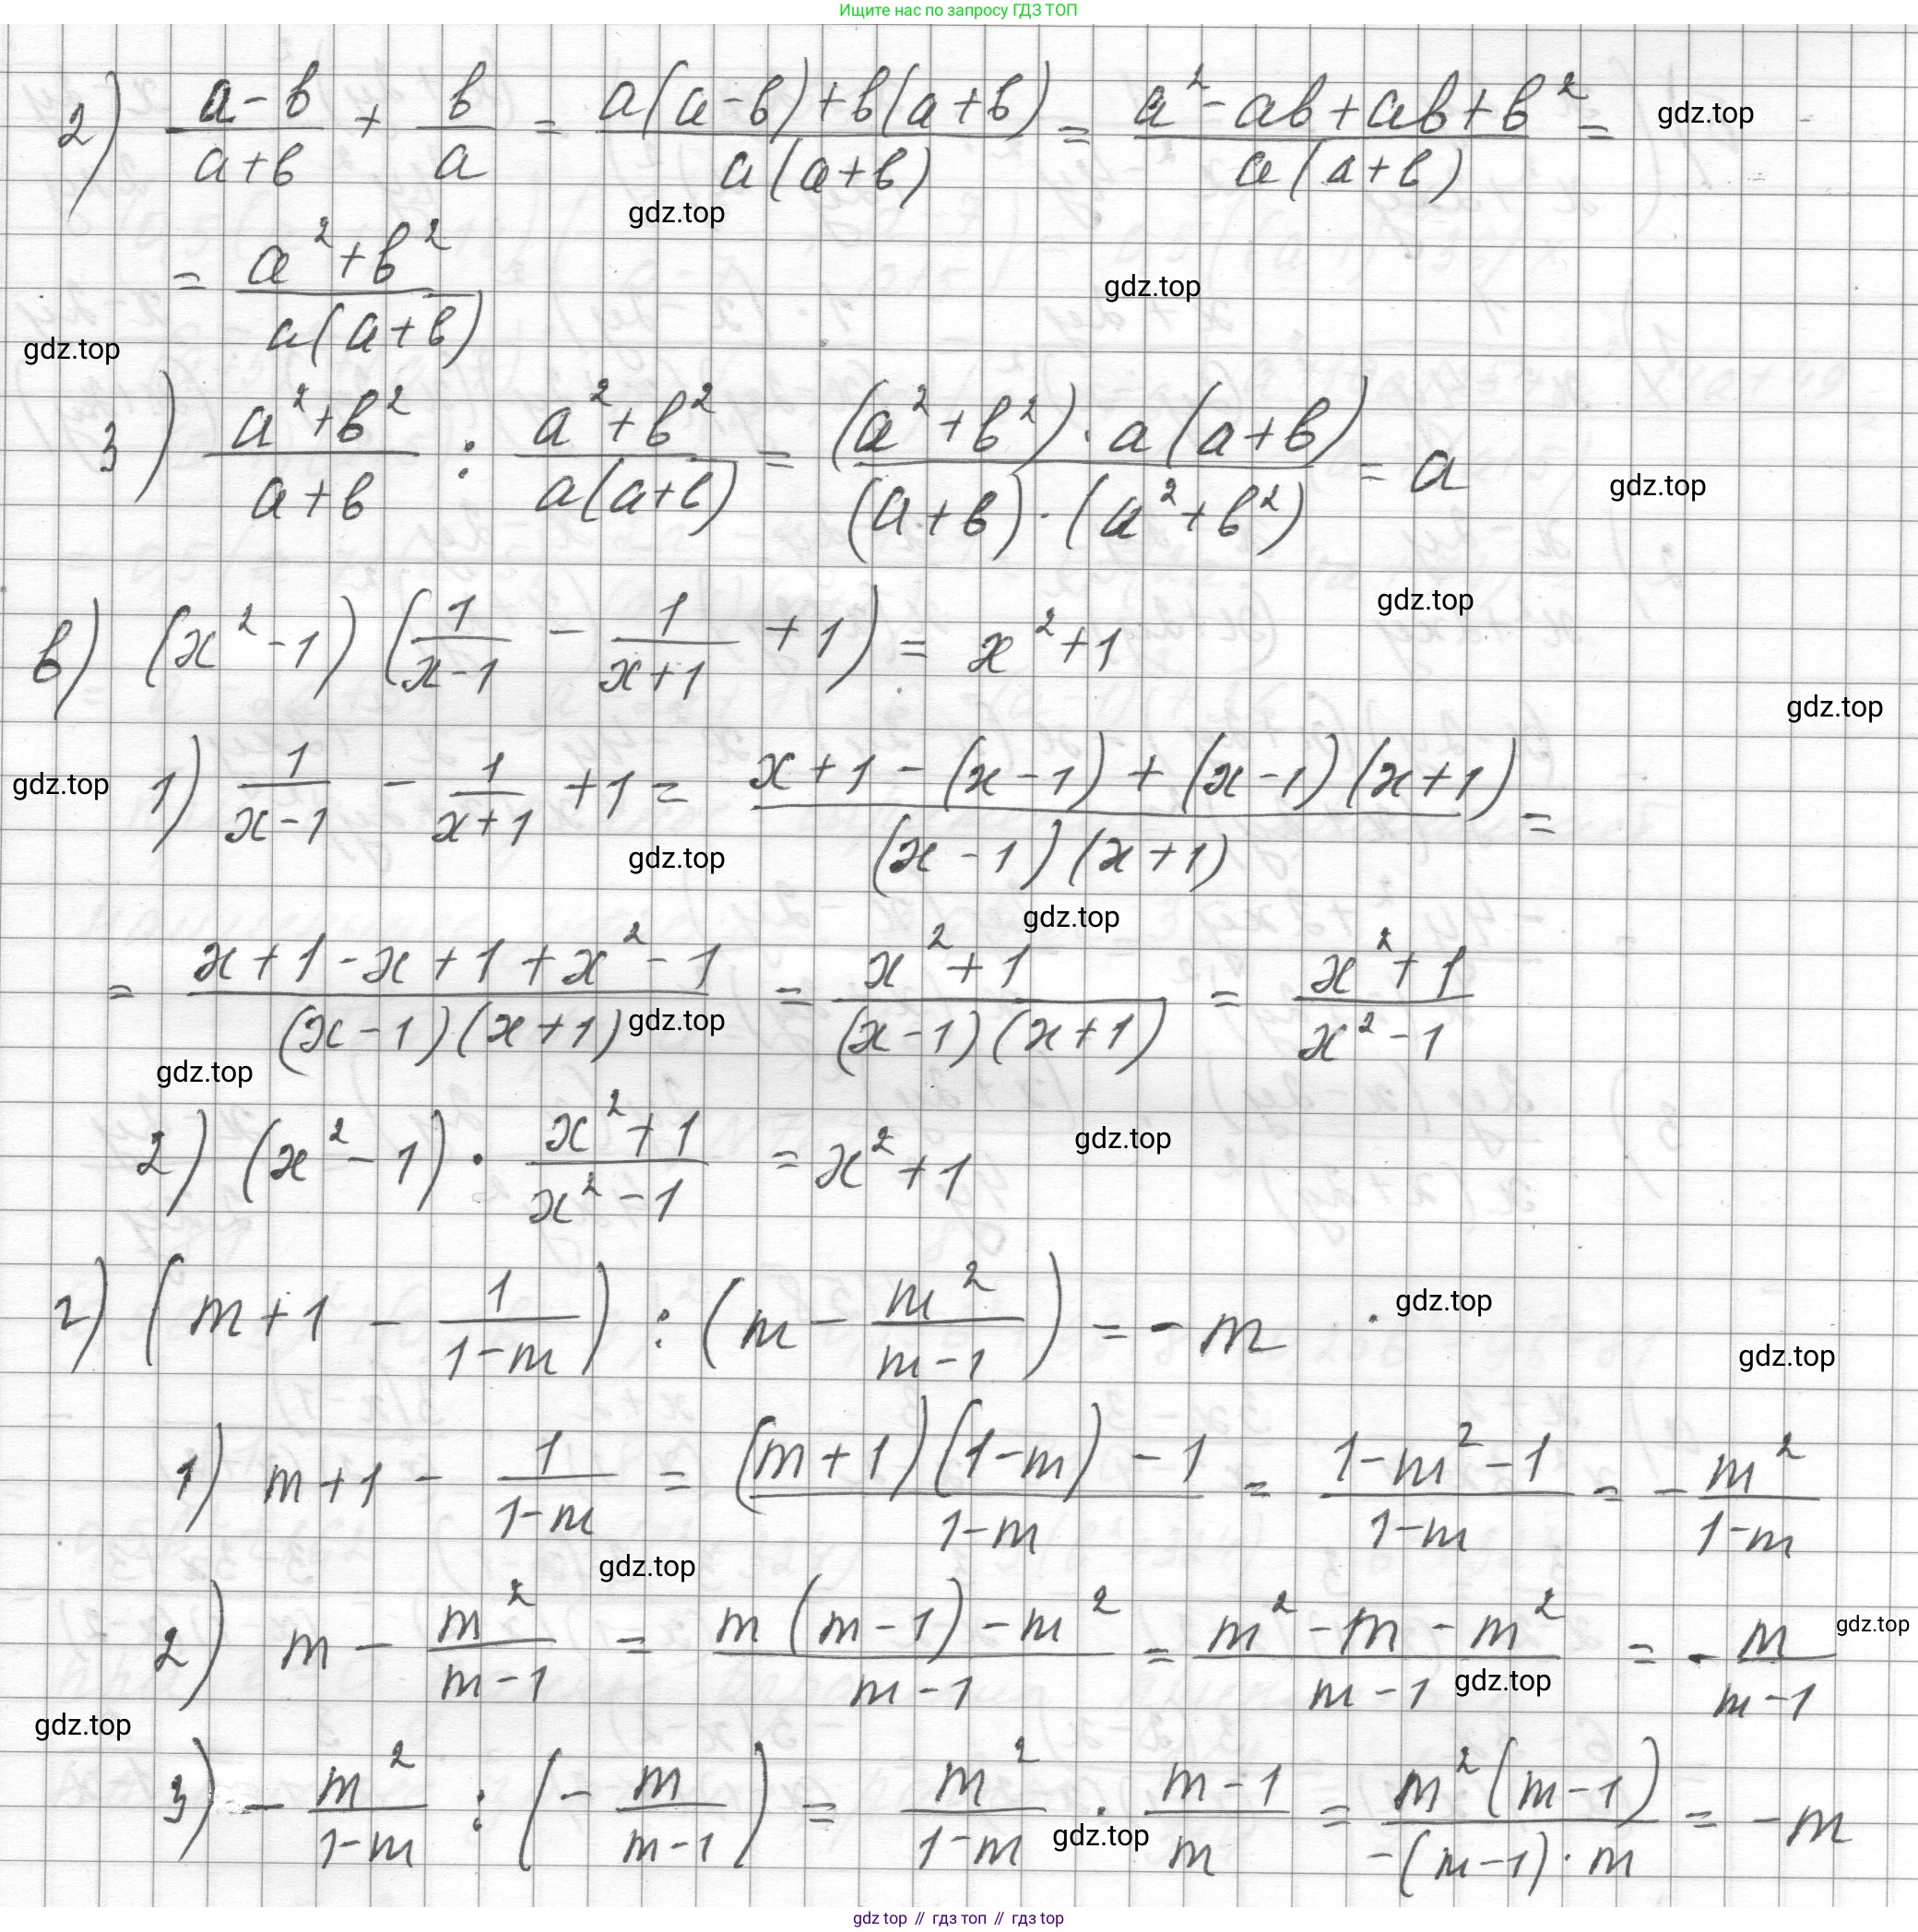 Ищите нас по запросу ГДЗ ТОП
2) (a-b)/(a+b) + b/a = (a(a-b)+b(a+b))/(a(a+b)) = (a²-ab+ab+b²)/(a(a+b)) = gdz.top
gdz.top
= (a²+b²)/(a(a+b)) gdz.top
gdz.top
3) (a²+b²)/(a+b) : (a²+b²)/(a(a+b)) = ((a²+b²)·a(a+b))/((a+b)·(a²+b²)) = a gdz.top
gdz.top
в) (x²-1)(1/(x-1) - 1/(x+1) + 1) = x²+1
gdz.top
gdz.top 1) 1/(x-1) - 1/(x+1) + 1 = (x+1-(x-1)+(x-1)(x+1))/((x-1)(x+1)) =
gdz.top
gdz.top
= (x+1-x+1+x²-1)/((x-1)(x+1)) = (x²+1)/((x-1)(x+1)) = (x²+1)/(x²-1)
gdz.top
gdz.top
2) (x²-1) · (x²+1)/(x²-1) = x²+1 gdz.top
г) (m+1 - 1/(1-m)) : (m - m²/(m-1)) = -m gdz.top
gdz.top
1) m+1 - 1/(1-m) = ((m+1)(1-m)-1)/(1-m) = (1-m²-1)/(1-m) = - m²/(1-m)
gdz.top
2) m - m²/(m-1) = (m(m-1)-m²)/(m-1) = (m²-m-m²)/(m-1) = - m/(m-1) gdz.top
gdz.top
gdz.top
3) - m²/(1-m) : (- m/(m-1)) = m²/(1-m) · (m-1)/m = (m²(m-1))/(-(m-1)·m) = -m
gdz.top
gdz top // гдз топ // гдз top